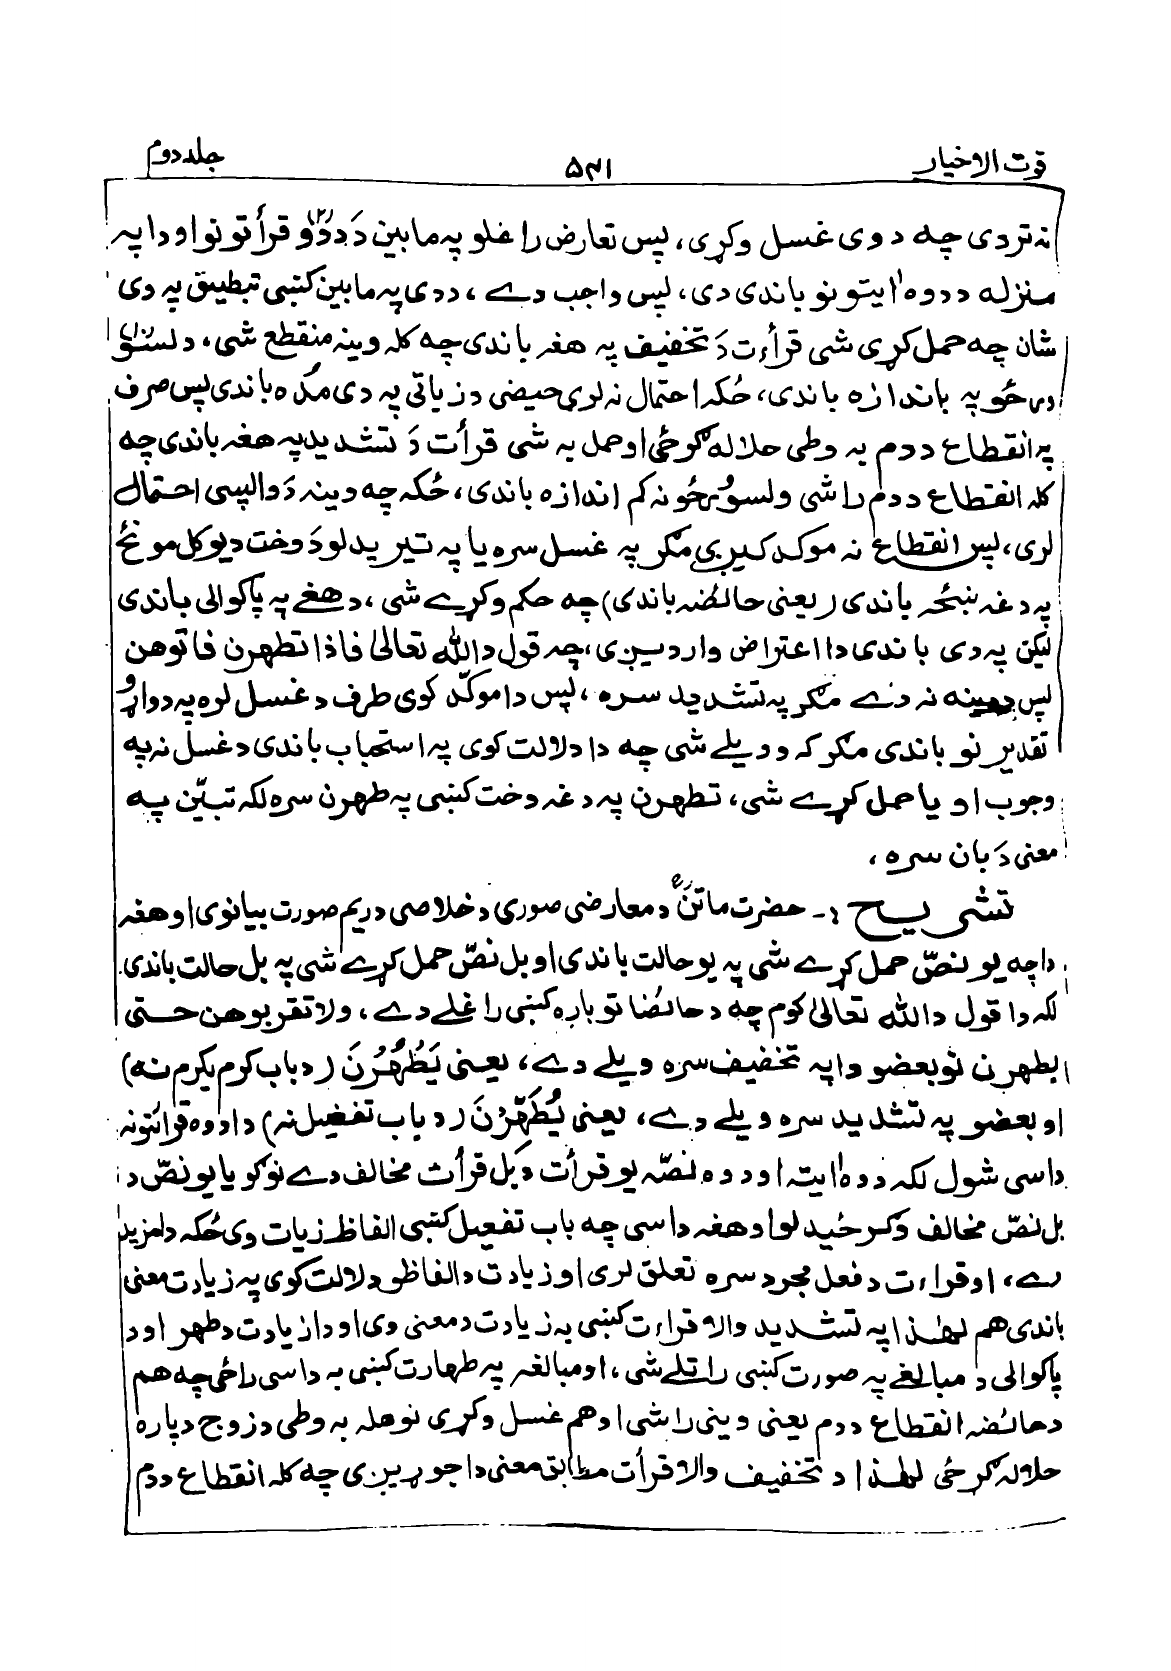 قوت الاخیار ۵۴۱ جلد دوم
نه تردی چه دوی غسل وکړی، پس تعارض راغلو په مابین دَ دوو قرأتونو او دا په
منزله د دوه ایتونو باندی دی، پس واجب دے، ددی په مابین کښی تبطیق په دی
شان چه حمل کړی شی قرأت دَ تخفیف په هغه باندی چه کله وینه منقطع شی، د لسو
ورځو په باندازه باندی، ځکه احتمال نه لری حیض د زیاتی په دی مده باندی پس صرف
په انقطاع د دم به وطی حلاله گرځی او حمل به شی قرأت دَ تشدید په هغه باندی چه
کله انقطاع د دم راشی و لسو ورځو نه کم اندازه باندی، ځکه چه د وینه دَ واپسی احتمال
لری، پس انقطاع نه موکد کیږی مگر په غسل سره یا په تیریدلو دَ وخت د یو کل مونځ
په دغه ښځه باندی (یعنی حائضه باندی) چه حکم وکړے شی، د هغے په پاکوالی باندی
لیکن په دی باندی دا اعتراض واردیږی، چه قول د الله تعالیٰ فاذا تطهرن فاتوهن
پس نه دے مگر په تشدید سره، پس دا موکّد کوی طرف د غسل لره په دواړو
تقدیرنو باندی مگر که وویلے شی چه دا دلالت کوی په استحباب باندی د غسل نه په
وجوب او یا حمل کړے شی، تطهرن په دغه وخت کښی په طهرن سره لکه تبیّن په
معنی دَ بان سره،
تشریح :۔ حضرت ماتنؒ د معارضی صوری د خلاصی دریم صورت بیانوی او هغه
دا چه یو نصّ حمل کړے شی په یو حالت باندی او بل نصّ حمل کړے شی په بل حالت باندی
لکه دا قول د الله تعالیٰ کوم چه د حائضا تو باره کښی راغلے دے، ولا تقربوهن حتی
یطهرن نو بعضو دا په تخفیف سره ویلے دے، یعنی یَطْهُرْنَ (د باب کرم یکرم نه)
او بعضو په تشدید سره ویلے دے، یعنی یُطَهِّرْنَ (د باب تفعیل نه) دا دوه قرائتونه
داسی شول لکه دوه ایته او دوه نصّه یو قرأت دَ بل قرأت مخالف دے نو گویا یو نصّ د
بل نصّ مخالف وگرځیدلو او هغه داسی چه باب تفعیل کښی الفاظ زیات وی ځکه دا مزید
دے، او قراءت د فعل مجرد سره تعلق لری او زیادت د الفاظو دلالت کوی په زیادت معنی
باندی هم لهٰذا په تشدید والا قراءت کښی به زیادت د معنی وی او دا زیادت د طهر او د
پاکوالی د مبالغے په صورت کښی راتلے شی، او مبالغه په طهارت کښی به داسی راځی چه هم
د حائضه انقطاع د دم یعنی وینی راشی او هم غسل وکړی نو هله به وطی د زوج دپاره
حلاله گرځی لهٰذا د تخفیف والا قرأت مطابق معنی دا جوړیږی چه کله انقطاع د دم